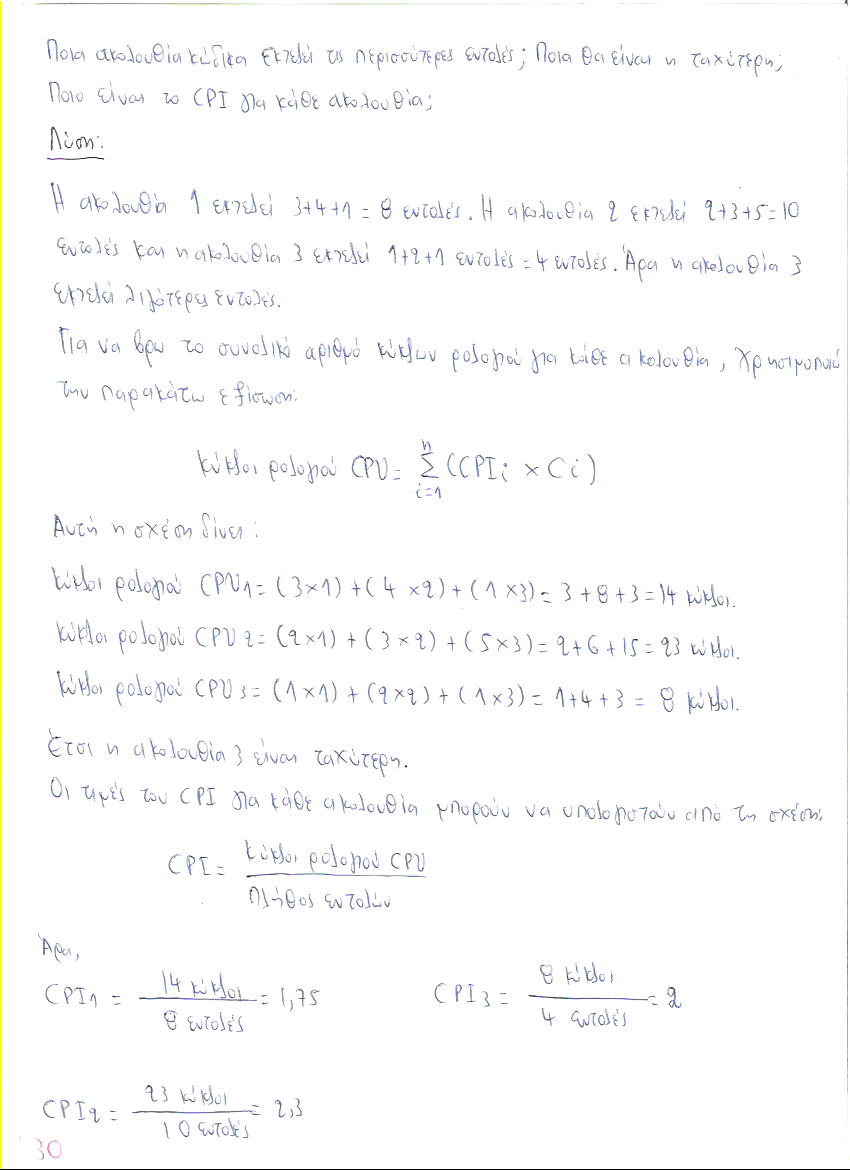 Ποια ακολουθία κώδικα εκτελεί τις περισσότερες εντολές; Ποια θα είναι η ταχύτερη;
Ποιο είναι το CPI για κάθε ακολουθία;
Λύση:
Η ακολουθία 1 εκτελεί 3+4+1 = 8 εντολές. Η ακολουθία 2 εκτελεί 2+3+5=10
εντολές και η ακολουθία 3 εκτελεί 1+2+1 εντολές = 4 εντολές. Άρα η ακολουθία 3
εκτελεί λιγότερες εντολές.
Για να βρω το συνολικό αριθμό κύκλων ρολογιού για κάθε ακολουθία, χρησιμοποιώ
την παρακάτω εξίσωση:
Κύκλοι ρολογιού CPU = \sum_{i=1}^{n} (CPIi × Ci)
Αυτή η σχέση δίνει:
Κύκλοι ρολογιού CPU1 = (3×1) + (4 ×2) + (1×3) = 3+8+3=14 κύκλοι.
Κύκλοι ρολογιού CPU 2 = (2×1) + (3×2) + (5×3) = 2+6+15 = 23 κύκλοι.
Κύκλοι ρολογιού CPU 3 = (1×1) + (2×2) + (1×3) = 1+4+3 = 8 κύκλοι.
Έτσι η ακολουθία 3 είναι ταχύτερη.
Οι τιμές του CPI για κάθε ακολουθία μπορούν να υπολογιστούν από τη σχέση:
CPI = Κύκλοι ρολογιού CPU / Πλήθος εντολών
Άρα,
CPI1 = 14 κύκλοι / 8 εντολές = 1,75 CPI3 = 8 κύκλοι / 4 εντολές = 2
CPI2 = 23 κύκλοι / 10 εντολές = 2,3
30